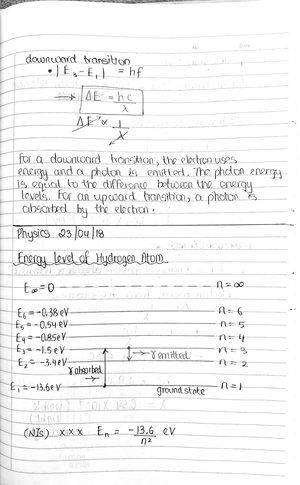 downward transition
• |E₃ - E₁| = hf
⇒ ΔE = hc/λ
ΔE ∝ 1/λ
For a downward transition, the electron uses
energy and a photon is emitted. The photon energy
is equal to the difference between the energy
levels. For an upward transition, a photon is
absorbed by the electron.
Physics 23/04/18
Energy level of Hydrogen Atom
E∞=0 n=∞
E₆=-0.38eV n=6
E₅=-0.54eV n=5
E₄=-0.85eV n=4
E₃=-1.5eV n=3
E₂=-3.4eV n=2
γ absorbed
γ emitted
E₁=-13.6eV n=1
ground state
(NIS) x x x Eₙ = -13.6/n² eV